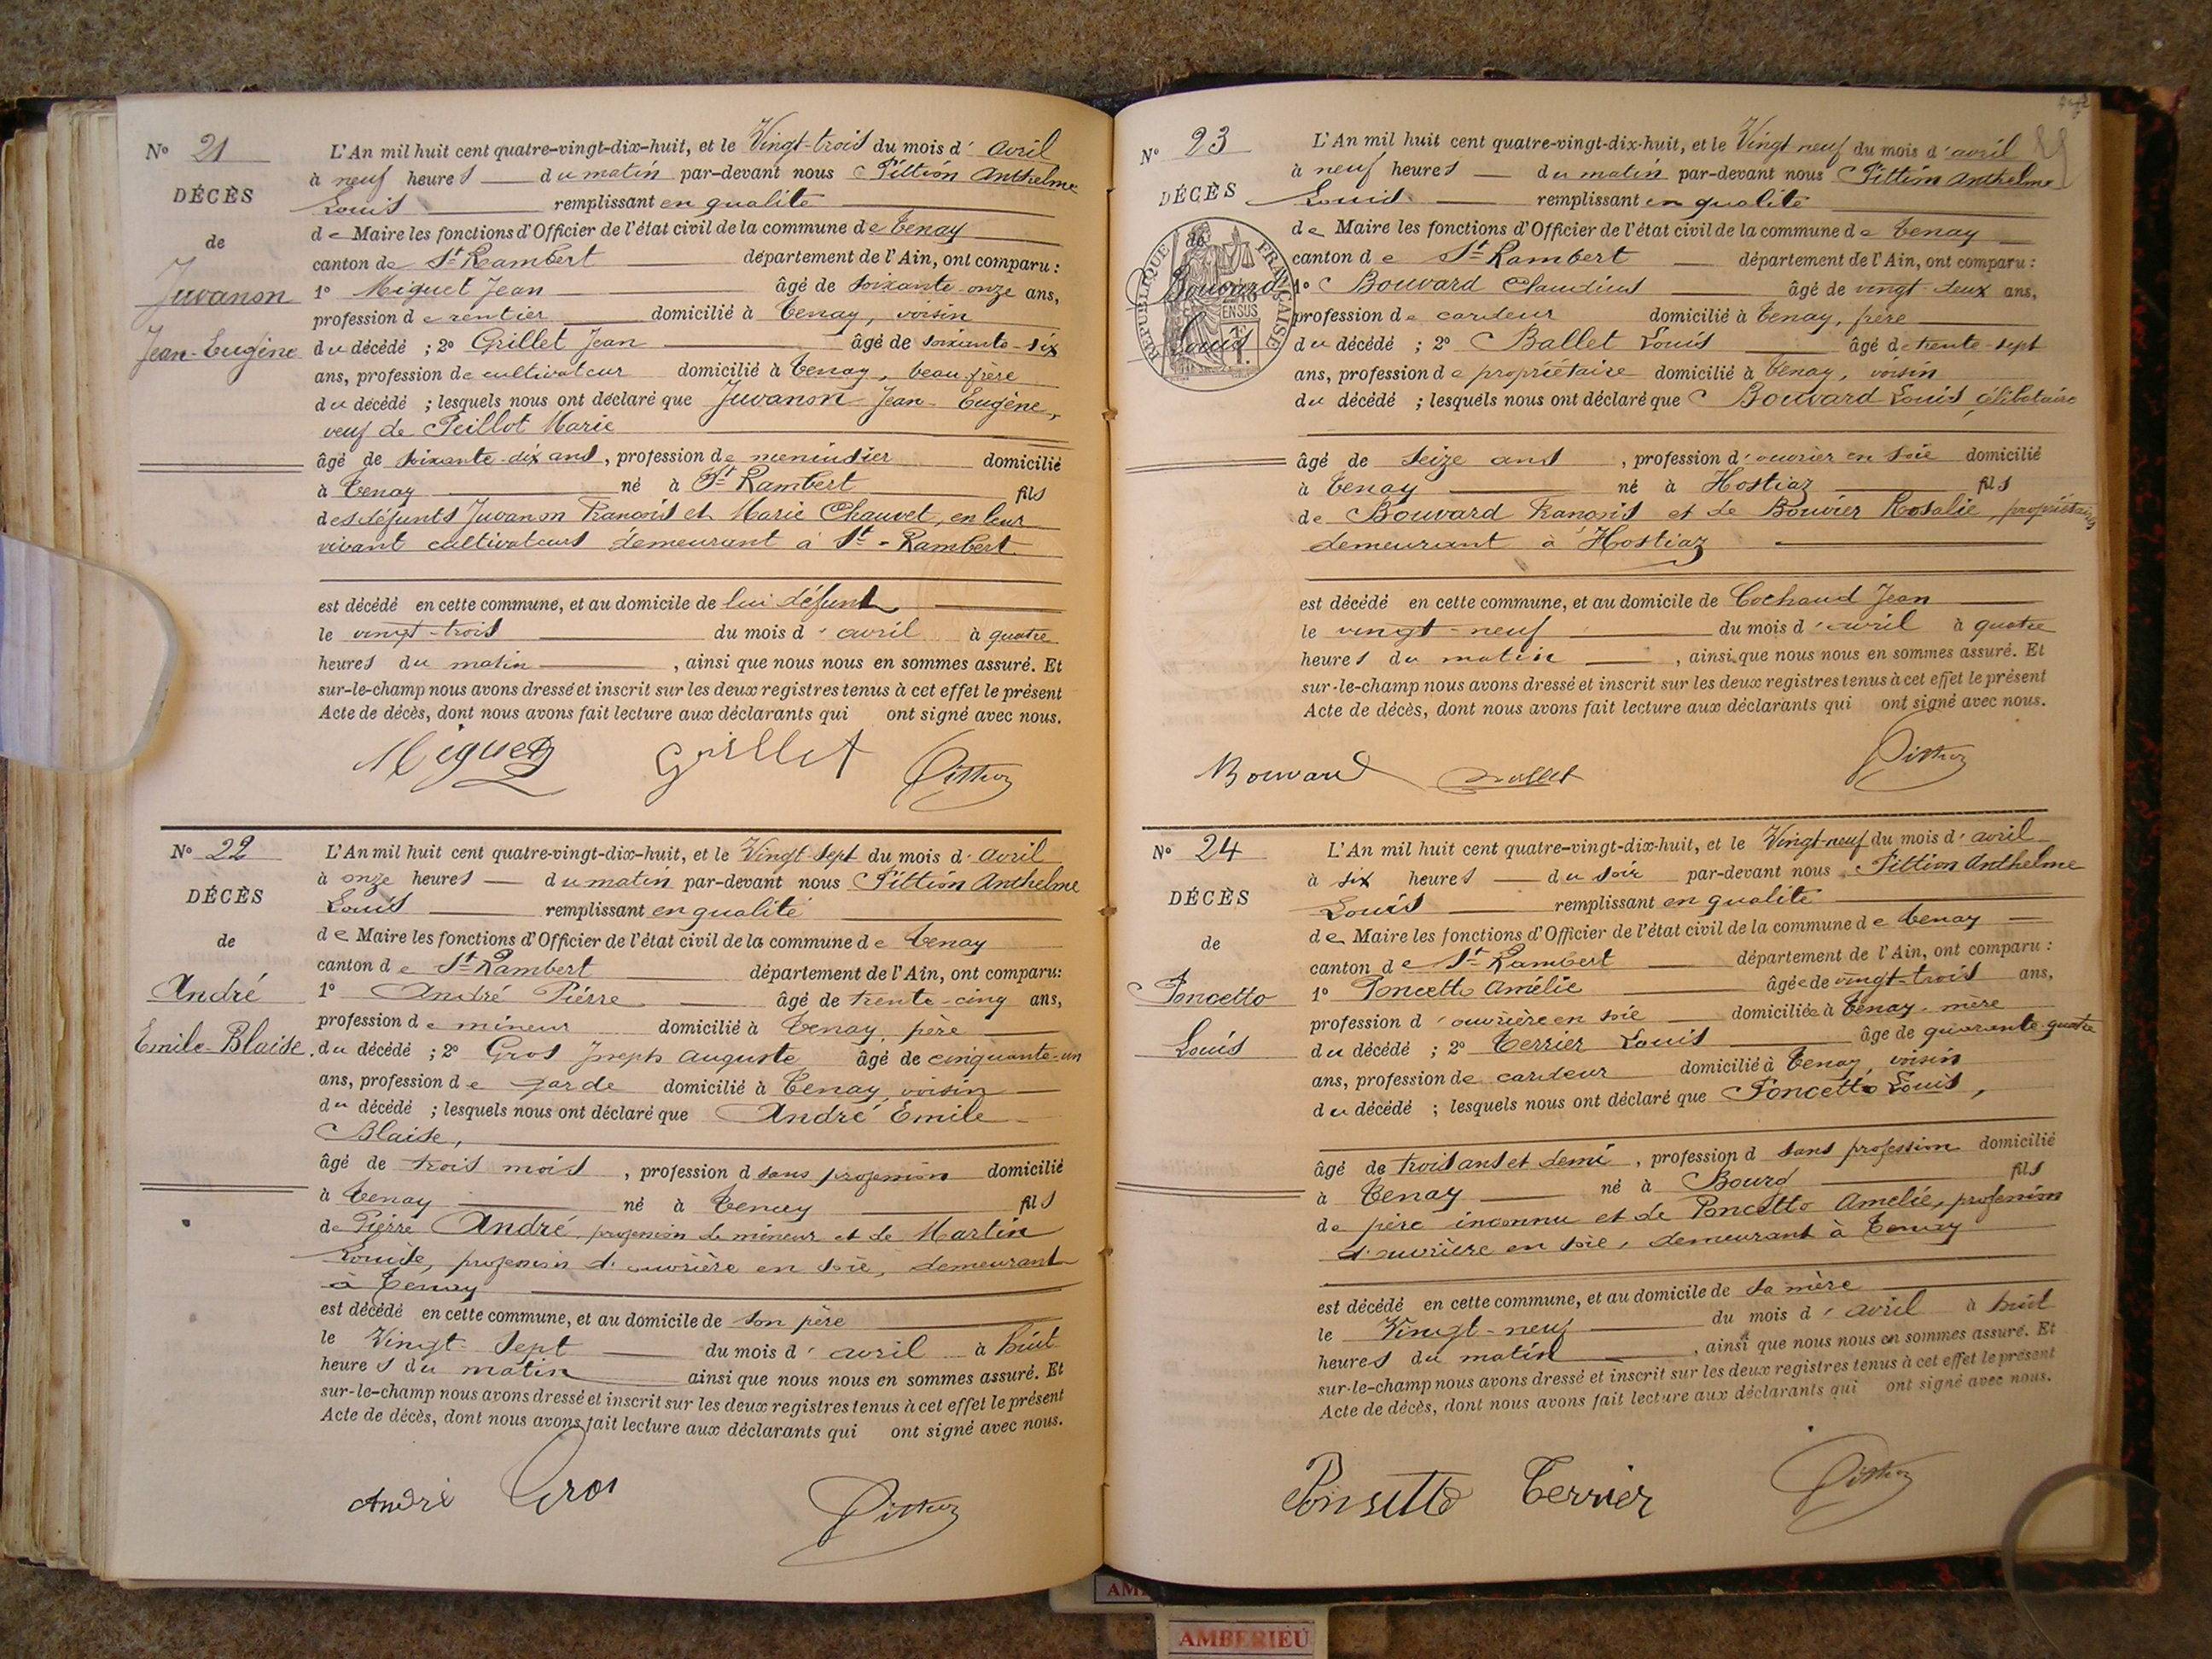 N° 21
DÉCÈS
de
Juvanon
Jean-Eugène
L'An mil huit cent quatre-vingt-dix-huit, et le Vingt-trois du mois d'avril
à neuf heures du matin par-devant nous Pittion Anthelme
Louis remplissant en qualité
de Maire les fonctions d'Officier de l'état civil de la commune de Tenay
canton de St-Rambert département de l'Ain, ont comparu :
1° Miguet Jean âgé de soixante-onze ans,
profession de rentier domicilié à Tenay, voisin
du décédé ; 2° Grillet Jean âgé de soixante-six
ans, profession de cultivateur domicilié à Tenay, beau frère
du décédé ; lesquels nous ont déclaré que Juvanon Jean-Eugène,
veuf de Peillot Marie
âgé de soixante-dix ans, profession de menuisier domicilié
à Tenay né à St-Rambert fils
des défunts Juvanon François et Marie Chauvet, en leur
vivant cultivateurs demeurant à St-Rambert
est décédé en cette commune, et au domicile de lui défunt
le vingt-trois du mois d'avril à quatre
heures du matin, ainsi que nous nous en sommes assuré. Et
sur-le-champ nous avons dressé et inscrit sur les deux registres tenus à cet effet le présent
Acte de décès, dont nous avons fait lecture aux déclarants qui ont signé avec nous.
Miguet Grillet Pittion
N° 22
DÉCÈS
de
André
Emile-Blaise
L'An mil huit cent quatre-vingt-dix-huit, et le Vingt-sept du mois d'avril
à onze heures du matin par-devant nous Pittion Anthelme
Louis remplissant en qualité
de Maire les fonctions d'Officier de l'état civil de la commune de Tenay
canton de St-Rambert département de l'Ain, ont comparu:
1° André Pierre âgé de trente-cinq ans,
profession de mineur domicilié à Tenay, père
du décédé ; 2° Gros Joseph Auguste âgé de cinquante-un
ans, profession de garde domicilié à Tenay, voisin
du décédé ; lesquels nous ont déclaré que André Emile
Blaise,
âgé de trois mois, profession d sans profession domicilié
à Tenay né à Tenay fils
de Pierre André, profession de mineur et de Martin
Louise, profession d'ouvrière en soie, demeurant
à Tenay
est décédé en cette commune, et au domicile de son père
le Vingt-sept du mois d'avril à huit
heures du matin ainsi que nous nous en sommes assuré. Et
sur-le-champ nous avons dressé et inscrit sur les deux registres tenus à cet effet le présent
Acte de décès, dont nous avons fait lecture aux déclarants qui ont signé avec nous.
André Gros Pittion
N° 23
DÉCÈS
de
Bouvard
Louis
RÉPUBLIQUE FRANÇAISE
L'An mil huit cent quatre-vingt-dix-huit, et le Vingt-neuf du mois d'avril
à neuf heures du matin par-devant nous Pittion Anthelme
Louis remplissant en qualité
de Maire les fonctions d'Officier de l'état civil de la commune de Tenay
canton de St-Rambert département de l'Ain, ont comparu :
1° Bouvard Claudius âgé de vingt-deux ans,
profession de cardeur domicilié à Tenay, frère
du décédé ; 2° Ballet Louis âgé de trente-sept
ans, profession de propriétaire domicilié à Tenay, voisin
du décédé ; lesquels nous ont déclaré que Bouvard Louis célibataire
âgé de seize ans, profession d'ouvrier en soie domicilié
à Tenay né à Hostiaz fils
de Bouvard François et de Bouvier Rosalie, propriétaires
demeurant à Hostiaz
est décédé en cette commune, et au domicile de Cochaud Jean
le vingt-neuf du mois d'avril à quatre
heures du matin, ainsi que nous nous en sommes assuré. Et
sur-le-champ nous avons dressé et inscrit sur les deux registres tenus à cet effet le présent
Acte de décès, dont nous avons fait lecture aux déclarants qui ont signé avec nous.
Bouvard Ballet Pittion
N° 24
DÉCÈS
de
Poncetto
Louis
L'An mil huit cent quatre-vingt-dix-huit, et le Vingt-neuf du mois d'avril
à six heures du soir par-devant nous Pittion Anthelme
Louis remplissant en qualité
de Maire les fonctions d'Officier de l'état civil de la commune de Tenay
canton de St-Rambert département de l'Ain, ont comparu :
1° Poncetto Amélie âgée de vingt-trois ans,
profession d'ouvrière en soie domiciliée à Tenay, mère
du décédé ; 2° Terrier Louis âgé de quarante-quatre
ans, profession de cardeur domicilié à Tenay, voisin
du décédé ; lesquels nous ont déclaré que Poncetto Louis,
âgé de trois ans et demi, profession d sans profession domicilié
à Tenay né à Bourg fils
de père inconnu et de Poncetto Amélie, profession
d'ouvrière en soie, demeurant à Tenay
est décédé en cette commune, et au domicile de sa mère
le Vingt-neuf du mois d'avril à huit
heures du matin, ainsi que nous nous en sommes assuré. Et
sur-le-champ nous avons dressé et inscrit sur les deux registres tenus à cet effet le présent
Acte de décès, dont nous avons fait lecture aux déclarants qui ont signé avec nous.
Ponsetto Terrier Pittion
AMBERIEU